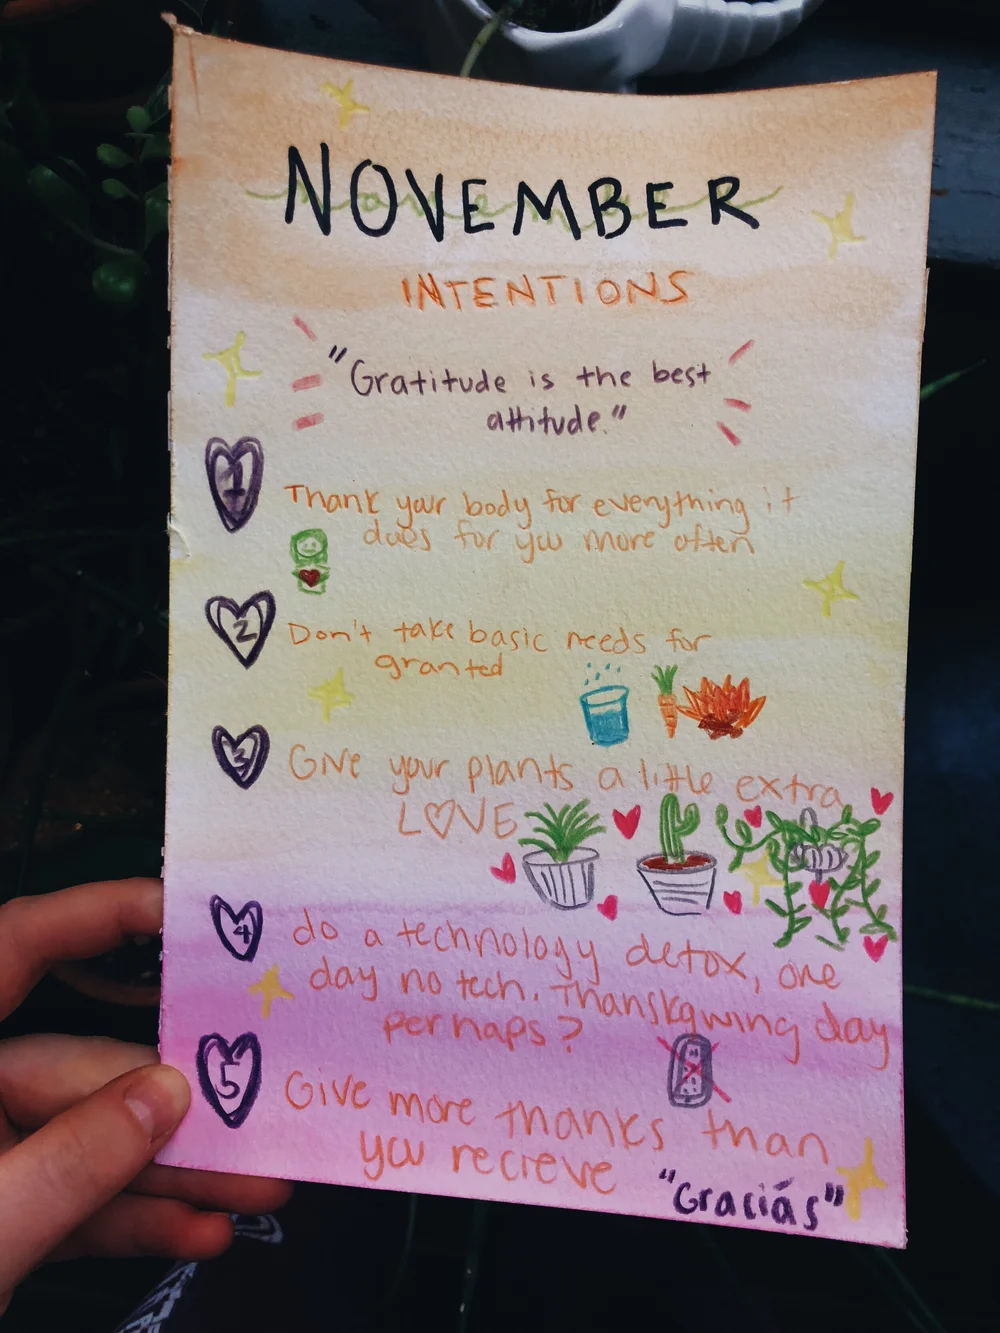 NOVEMBER
INTENTIONS
"Gratitude is the best
attitude."
1
Thank your body for everything it
does for you more often
2
Don't take basic needs for
granted
3
Give your plants a little extra
LOVE
4
do a technology detox, one
day no tech. Thanskgiving day
perhaps?
5
Give more thanks than
you recieve
"Graciás"